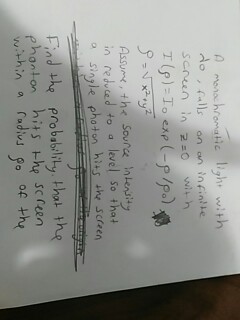 A monochromatic light with
λ0, falls on an infinite
screen in z=0 with
I(ρ) = I0 exp(-ρ/ρ0)
ρ = √x²+y²
Assume, the source intensity
in reduced to a level so that
a single photon hits the screen
Find the probability. that the
phanton hits the screen
within a radius ρ0 of the